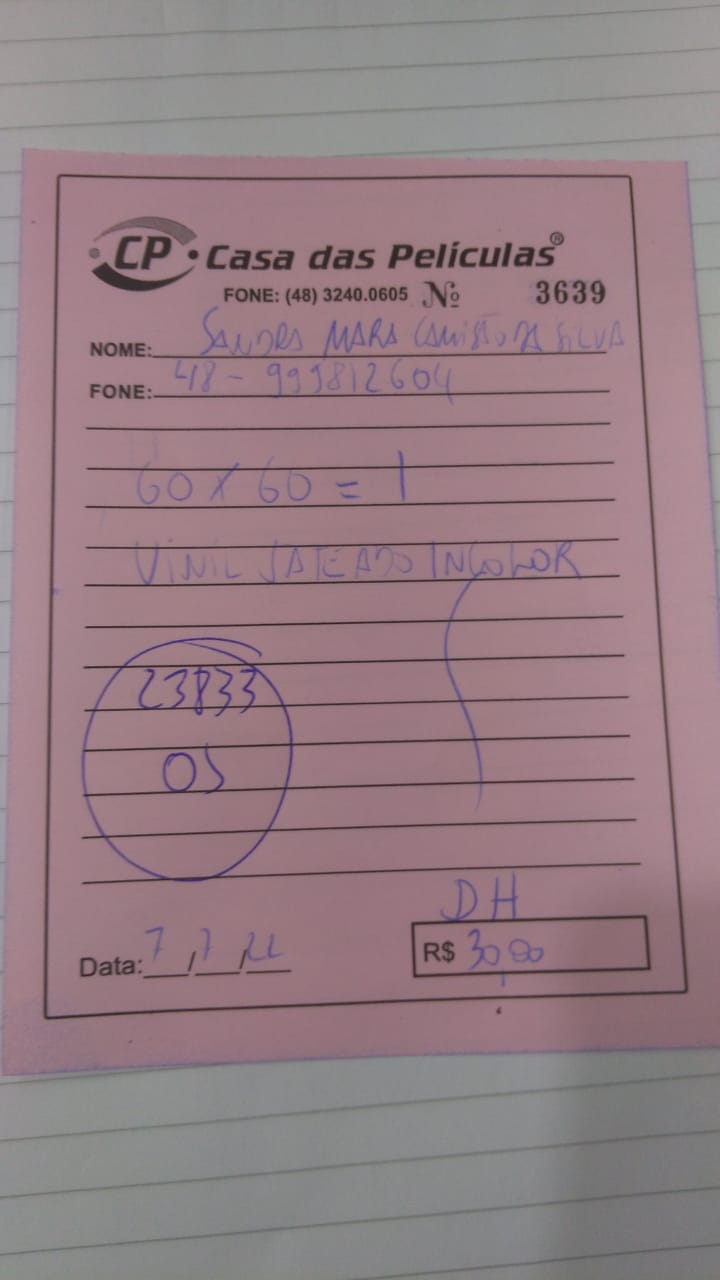 CP Casa das Películas®
FONE: (48) 3240.0605 Nº 3639
NOME: SANDRA MARA DA SILVA
FONE: 48 - 999812604
60 X 60 = 1
VINIL JATEADO INCOLOR
23833
OS
DH
Data: 7/7/22 R$ 30,00